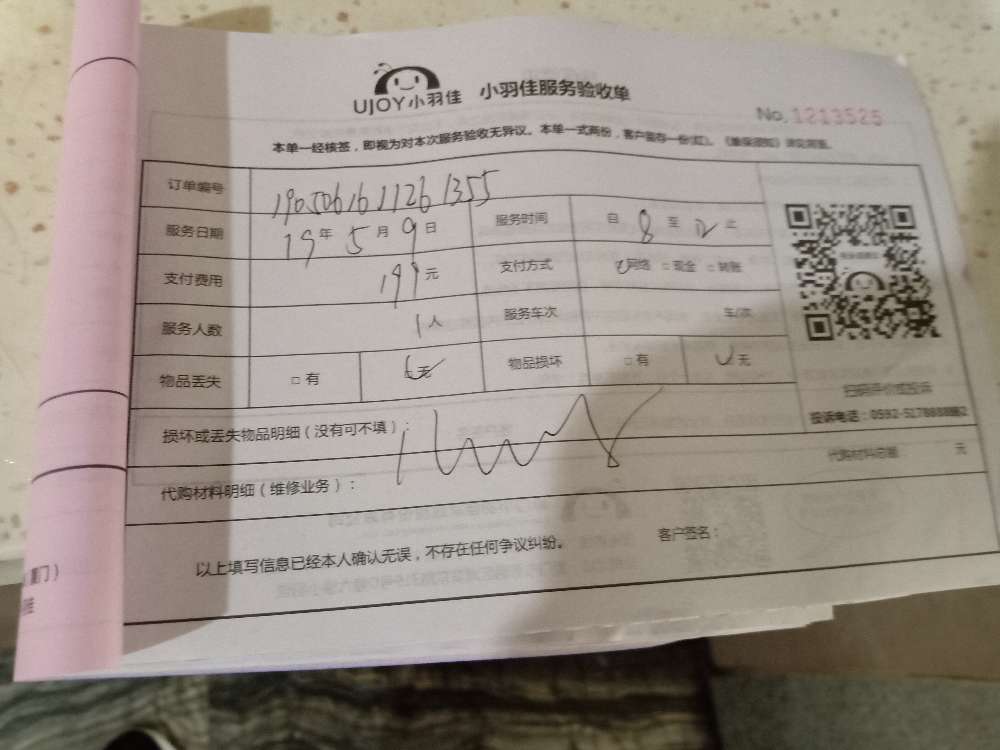 UJOY小羽佳 小羽佳服务验收单
No. 1213525
本单一经核签，即视为对本次服务验收无异议。本单一式两份，客户留存一份(红)。
订单编号 1905061611261355
服务日期 19年5月9日 服务时间 自 8 至 12 止
支付费用 199元 支付方式 网络 □现金 □转账
服务人数 1人 服务车次 车/次
物品丢失 □有 无 物品损坏 □有 无
扫码评价或投诉
损坏或丢失物品明细（没有可不填）：
投诉电话：0592-5178888
代购材料明细（维修业务）： 代购材料总额 元
以上填写信息已经本人确认无误，不存在任何争议纠纷。 客户签名：
门）